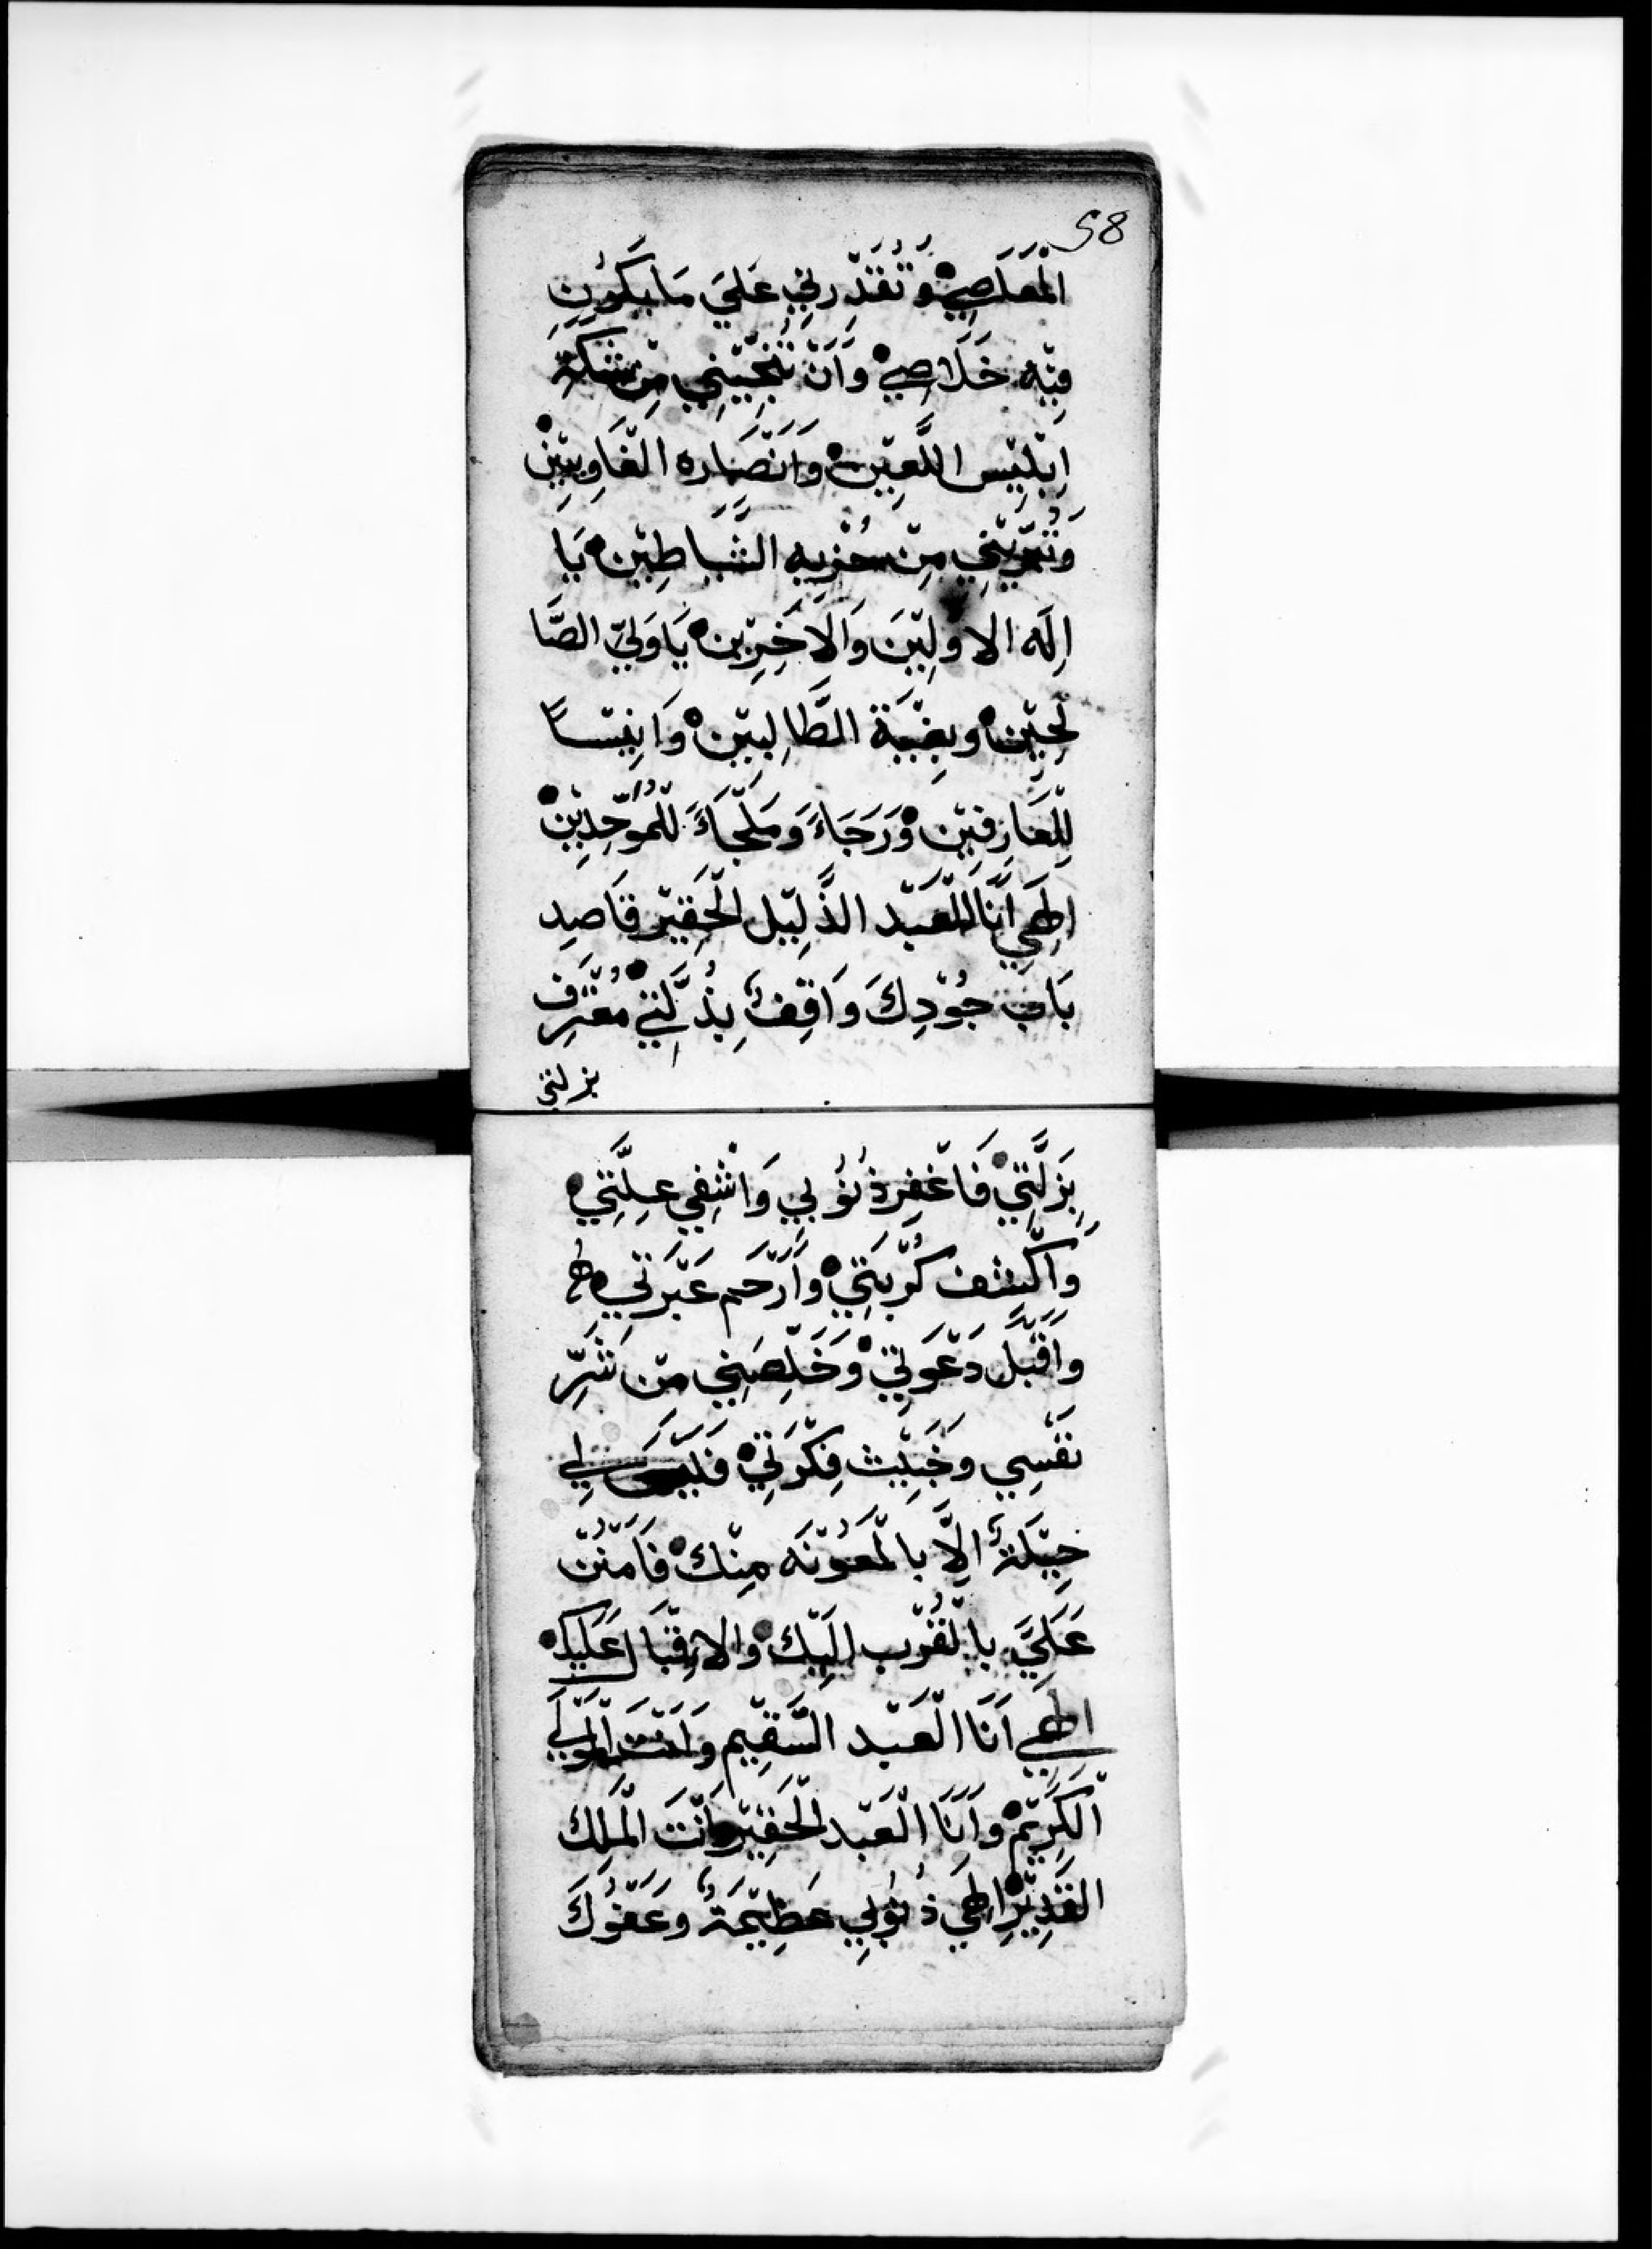 58
الْمَعَاصِيْ وَتُقَدِّرنِي عَلَيَ مَا يَكُوْنِ
فِيْهِ خَلَاصِيْ وَاَنْ تُنَجِّيْنِي مِنْ شَبَكَة
اِبْلِيْس اللَّعِيْن وَاَنْصَاره الْغَاوِيِيْن
وَتُبَرِّيْنِي مِنْ حِزْبِهِ الشَّيَاطِيْن يَا
اِلَه الاوَّلِيْنَ وَالاخِرِيْن يَا وَلِيّ الصَّا
لِحِيْن وَبِغْيَة الطَّالِبِيْن وَاَنِيْسًا
لِلْعَارِفِيْن وَرَجَاءً وَمَلْجَاءً لِلْمُوَحِّدِيْن
الهِي اَنَا الْعَبْد الذَّلِيْل الْحَقِيْر قَاصِد
بَاب جُوْدِكَ وَاقِفٌ بِذُلَّتِيْ مُعْتَرِف
بزلتي
بِزَلَّتِيْ فَاغْفِر ذُنُوْبِي وَاشْفِي عِلَّتِي
وَاكْشف كُرْبَتِيْ وَاَرْحَم عَبْرَتِي
وَاَقْبَل دَعْوَتِيْ وَخَلِّصْنِي مِنْ شَرِّ
نَفْسِي وَخَبِيْث فِكْرَتِيْ فَلَيْسَ لِي
حِيْلَةٌ اِلَّا بِالْمَعُوْنَه مِنْك فَامْنُنْ
عَلَيَّ بِالْقُرْب اِلَيْك وَالاِقْبَال عَلَيْك
الهي اَنَا الْعَبْد السَّقِيْم وَاَنْتَ الْمَوْلَي
الْكَرِيْم وَاَنَا الْعَبْد الْحَقِيْر وَاَنْتَ الْمَلِك
الْقَدِيْر اِلهَي ذُنُوْبِي عَظِيْمَةٌ وَعَفْوُكَ